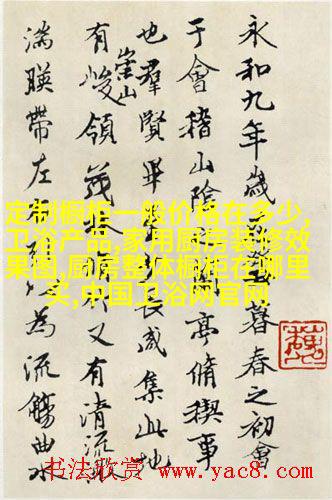 永和九年歲暮春之初會
于會稽山陰蘭亭脩禊事
也羣賢畢長咸集此地
有崇山峻領茂又有清流激
湍暎帶左以為流觴曲水
定制橱柜一般价格在多少,
卫浴产品,家用厨房装修效
果图,厨房整体橱柜在哪里
买,中国卫浴网官网
书法欣赏 www.yac8.com